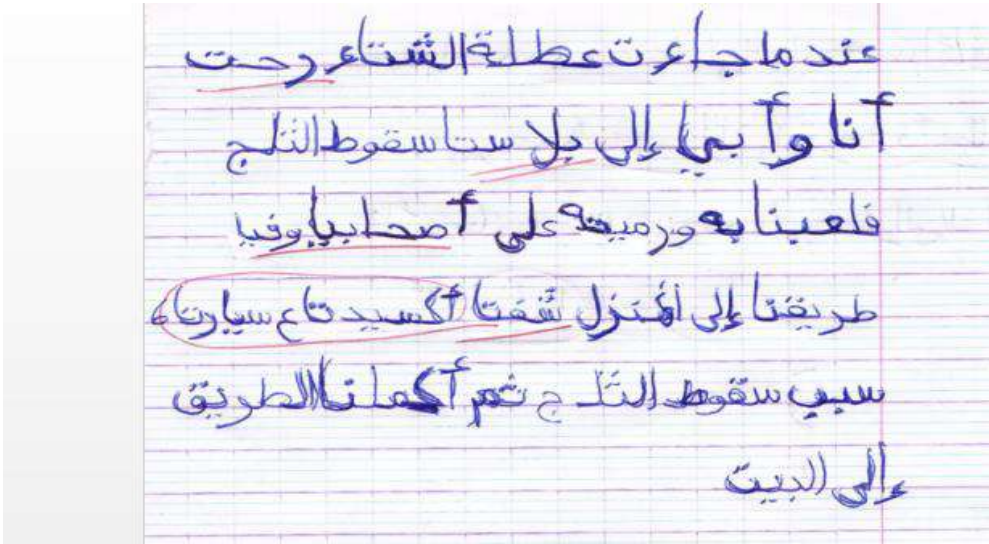 عندما جاءت عطلة الشتاء رحت
أنا وأبي إلى بلاستا سقوط الثلج
فلعبنا به ورميته على أصحابيا وفيا
طريقنا إلى المنزل شفنا أكسيد تاع سيارتاء
سبب سقوط الثلج ثم أكملنا الطريق
إلى البيت